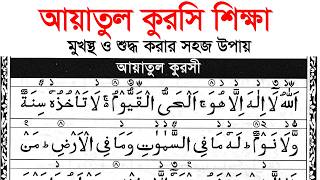 আয়াতুল কুরসি শিক্ষা
মুখস্থ ও শুদ্ধ করার সহজ উপায়
আয়াতুল কুরসী
اَللّٰهُ لَاۤ اِلٰهَ اِلَّا هُوَ ۚ اَلْحَىُّ الْقَيُّوْمُ ۚ لَا تَاْخُذُهٗ سِنَةٌ
وَّلَا نَوْمٌ ؕ لَهٗ مَا فِى السَّمٰوٰتِ وَمَا فِى الْاَرْضِ ؕ مَنْ